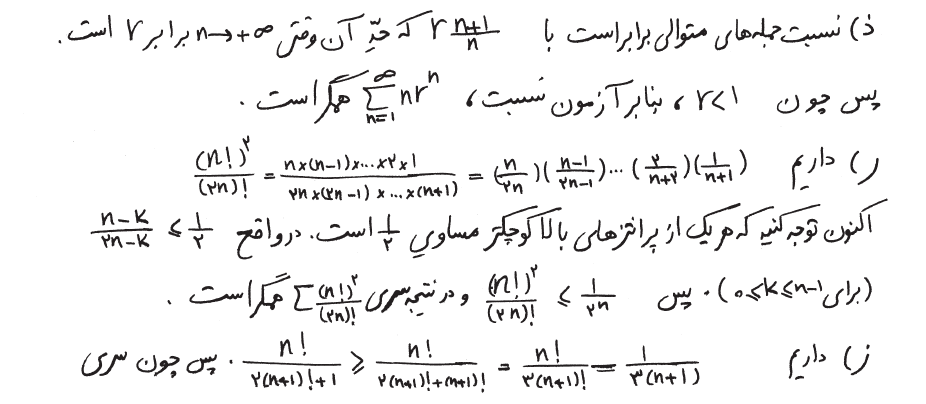 ذ) نسبت جمله‌های متوالی برابر است با r (n+1)/n که حدِّ آن وقتی n→+∞ برابر r است.
پس چون r<1، بنابر آزمون نسبت، ∑_{n=1}^{∞} nr^n همگراست.
ر) داریم (n!)^۲/(۲n)! = n×(n-1)×...×۲×۱/۲n×(۲n-1)×...×(n+1) = (n/۲n)(n-1/۲n-1)...(۲/n+۲)(1/n+1)
اکنون توجه کنید که هر یک از پرانتزهای بالا کوچکتر مساوی ۱/۲ است. در واقع n-k/۲n-k ≤ ۱/۲
(برای 0≤k≤n-1). پس (n!)^۲/(۲n)! ≤ 1/۲^n و در نتیجه سری ∑ (n!)^۲/(۲n)! همگراست.
ز) داریم n!/۲(n+1)!+1 ≥ n!/۲(n+1)!+(n+1)! = n!/۳(n+1)! = 1/۳(n+1). پس چون سری